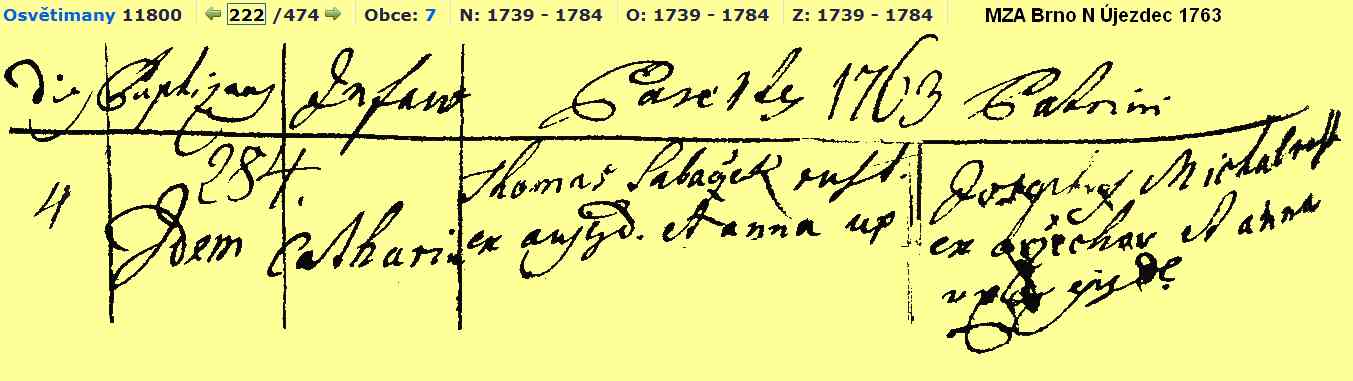 Osvětimany 11800 222 /474 Obce: 7 N: 1739 - 1784 O: 1739 - 1784 Z: 1739 - 1784 MZA Brno N Újezdec 1763
Die Baptizans Infans Parentes 1763 Patrini
284.
4 Idem Catharin
Thomas Sabaček rust.
ex augezd. et anna up
Josephus Michal rust
ex ořechov et anna